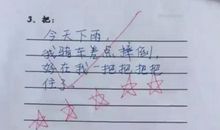 3、把：
今天下雨，
我骑车差点摔倒，
好在我一把把把把
住了